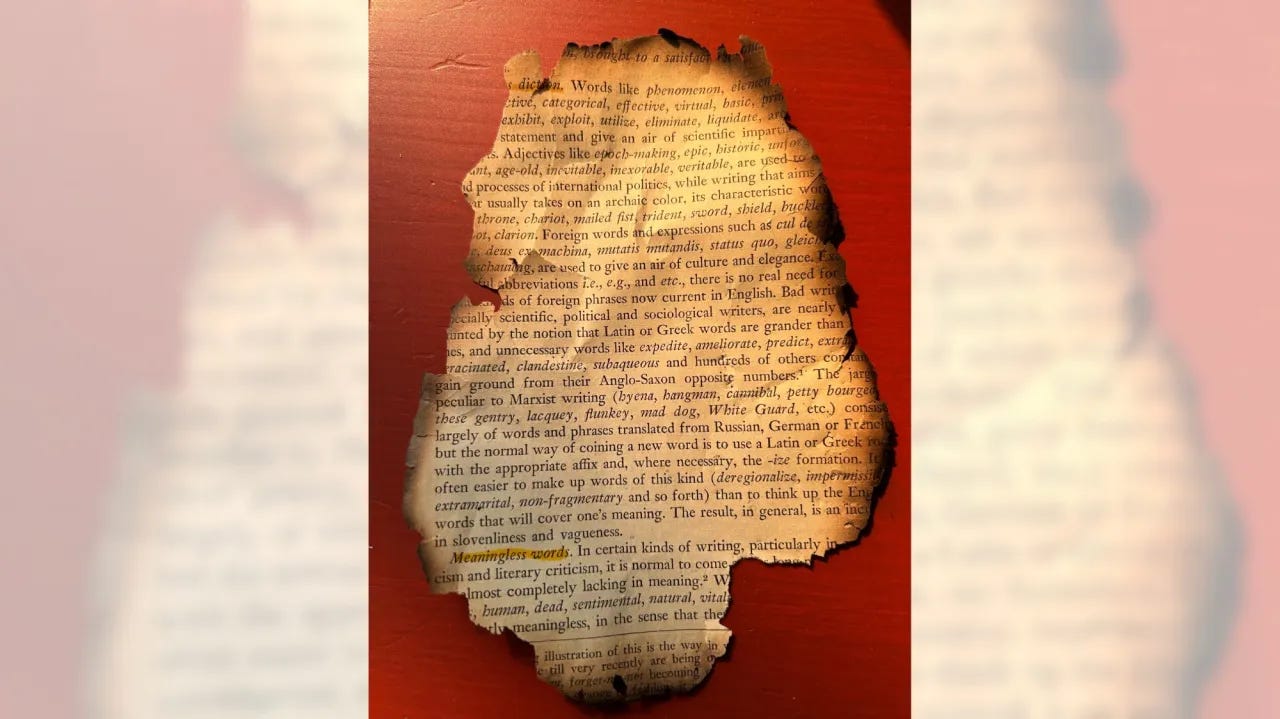 brought to a satisfac
diction. Words like phenomenon, elemen
ctive, categorical, effective, virtual, basic, pri
exhibit, exploit, utilize, eliminate, liquidate, are
statement and give an air of scientific imparti
s. Adjectives like epoch-making, epic, historic, unfor
ant, age-old, inevitable, inexorable, veritable, are used to
d processes of international politics, while writing that aims
ar usually takes on an archaic color, its characteristic wor
throne, chariot, mailed fist, trident, sword, shield, buckler
ot, clarion. Foreign words and expressions such as cul de
deus ex machina, mutatis mutandis, status quo, gleich
schauung, are used to give an air of culture and elegance. Ex
ful abbreviations i.e., e.g., and etc., there is no real need for
ds of foreign phrases now current in English. Bad writ
pecially scientific, political and sociological writers, are nearly
unted by the notion that Latin or Greek words are grander than
nes, and unnecessary words like expedite, ameliorate, predict, extra
racinated, clandestine, subaqueous and hundreds of others constan
gain ground from their Anglo-Saxon opposite numbers.¹ The jarg
peculiar to Marxist writing (hyena, hangman, cannibal, petty bourgeo
these gentry, lacquey, flunkey, mad dog, White Guard, etc.) consis
largely of words and phrases translated from Russian, German or French
but the normal way of coining a new word is to use a Latin or Greek ro
with the appropriate affix and, where necessary, the -ize formation. It
often easier to make up words of this kind (deregionalize, impermissi
extramarital, non-fragmentary and so forth) than to think up the Eng
words that will cover one's meaning. The result, in general, is an inc
in slovenliness and vagueness.
Meaningless words. In certain kinds of writing, particularly in
cism and literary criticism, it is normal to come
lmost completely lacking in meaning.² W
human, dead, sentimental, natural, vital
tly meaningless, in the sense that the
illustration of this is the way in
till very recently are being o
forget-me-not becoming